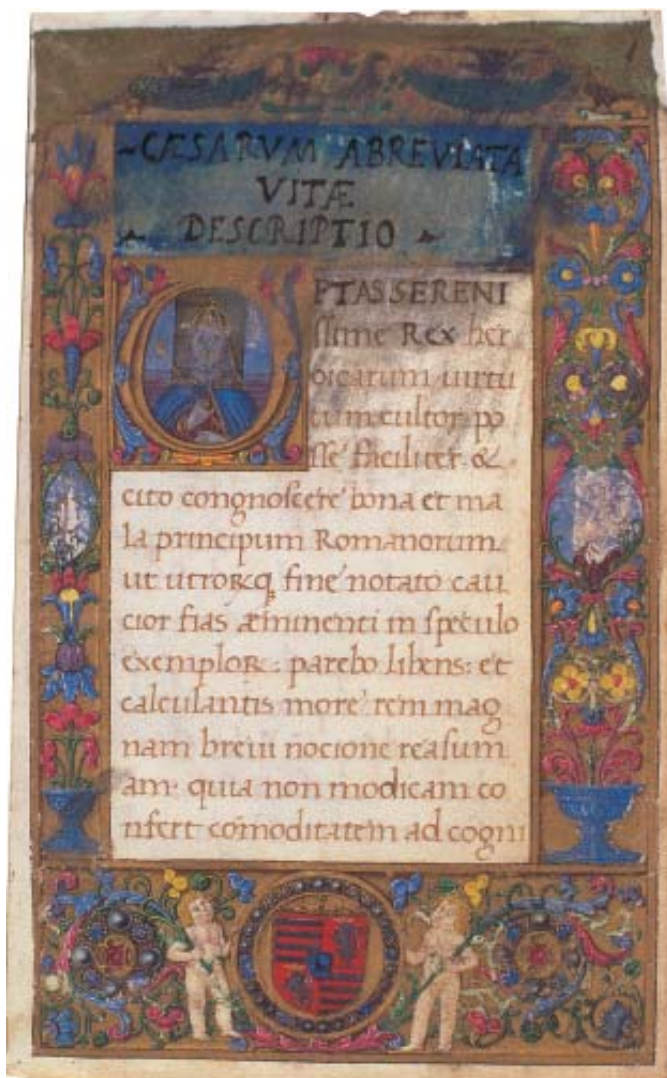 CÆSARVM ABREVIATA
VITÆ
DESCRIPTIO
OPTAS SERENI
ssime Rex her
oicarum uirtu
tum cultor po
sse faciliter &
cito congnoscere bona et ma
la principum Romanorum
ut utrorꝗ fine notato cau
cior fias æminenti in speculo
exemploꝝ : parebo libens: et
calculantis more rem mag
nam breui nocione reasum
am. quia non modicam co
nfert comoditatem ad cogni
1